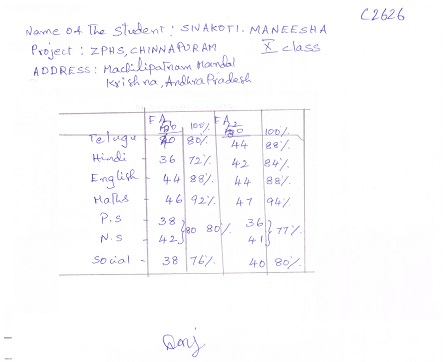 C2626
Name of The Student : SIVAKOTI. MANEESHA
Project : ZPHS, CHINNAPURAM X class
ADDRESS : Machilipatnam Mandal
Krishna, Andhra Pradesh
FA1 50 100% FA2 50 100%
Telugu - 40 80% 44 88%
Hindi - 36 72% 42 84%
English - 44 88% 44 88%
Maths - 46 92% 47 94%
P.S - 38 } 80 80% 36 } 77%
N.S - 42 41
Social - 38 76% 40 80%